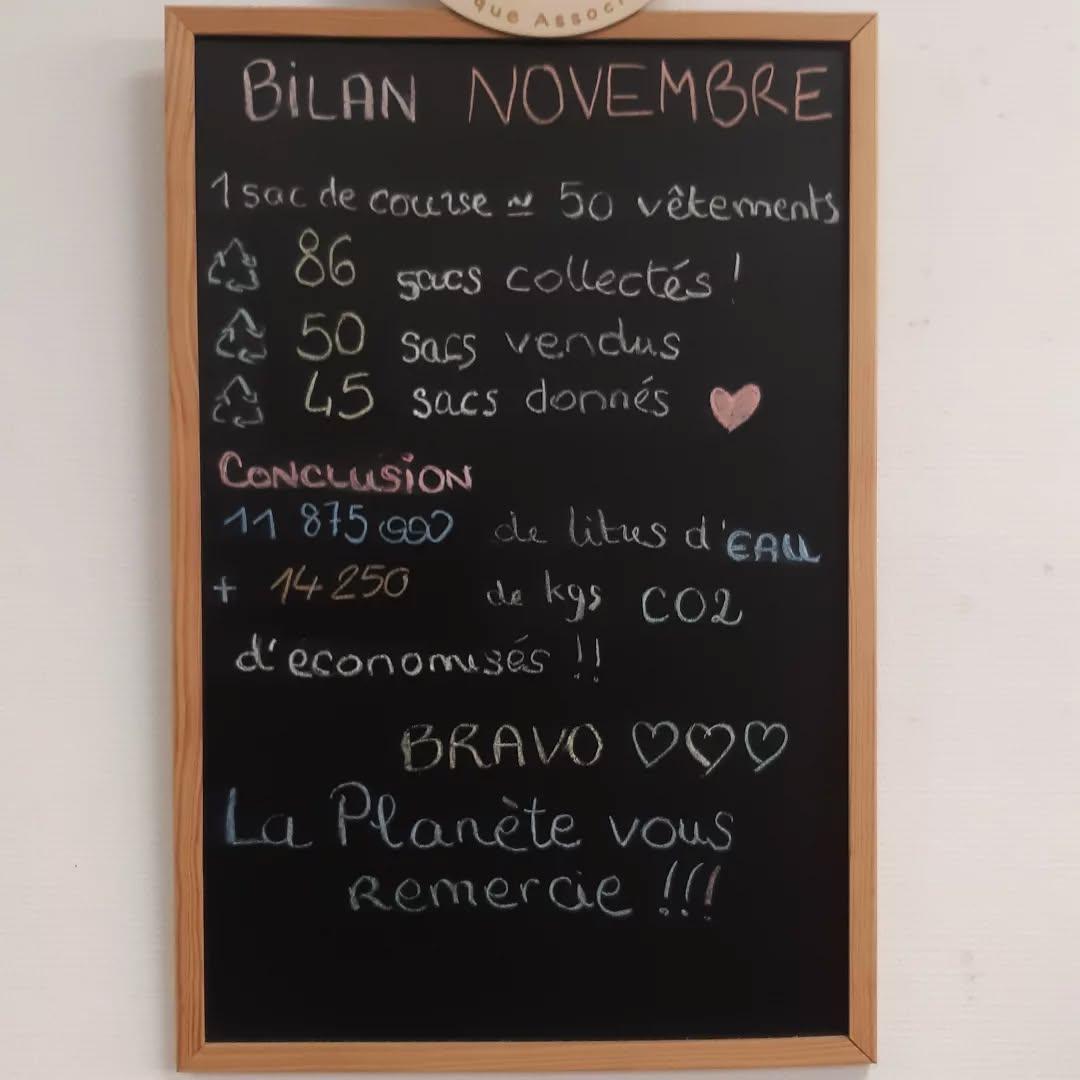 que Assoc
BiLAN NOVEMBRE
1 sac de course ≃ 50 vêtements
86 sacs collectés !
50 sacs vendus
45 sacs donnés
CONCLUSION
11 875 000 de litres d'EAU
+ 14 250 de kgs CO2
d'économisés !!
BRAVO ♡♡♡
La Planète vous
Remercie !!!